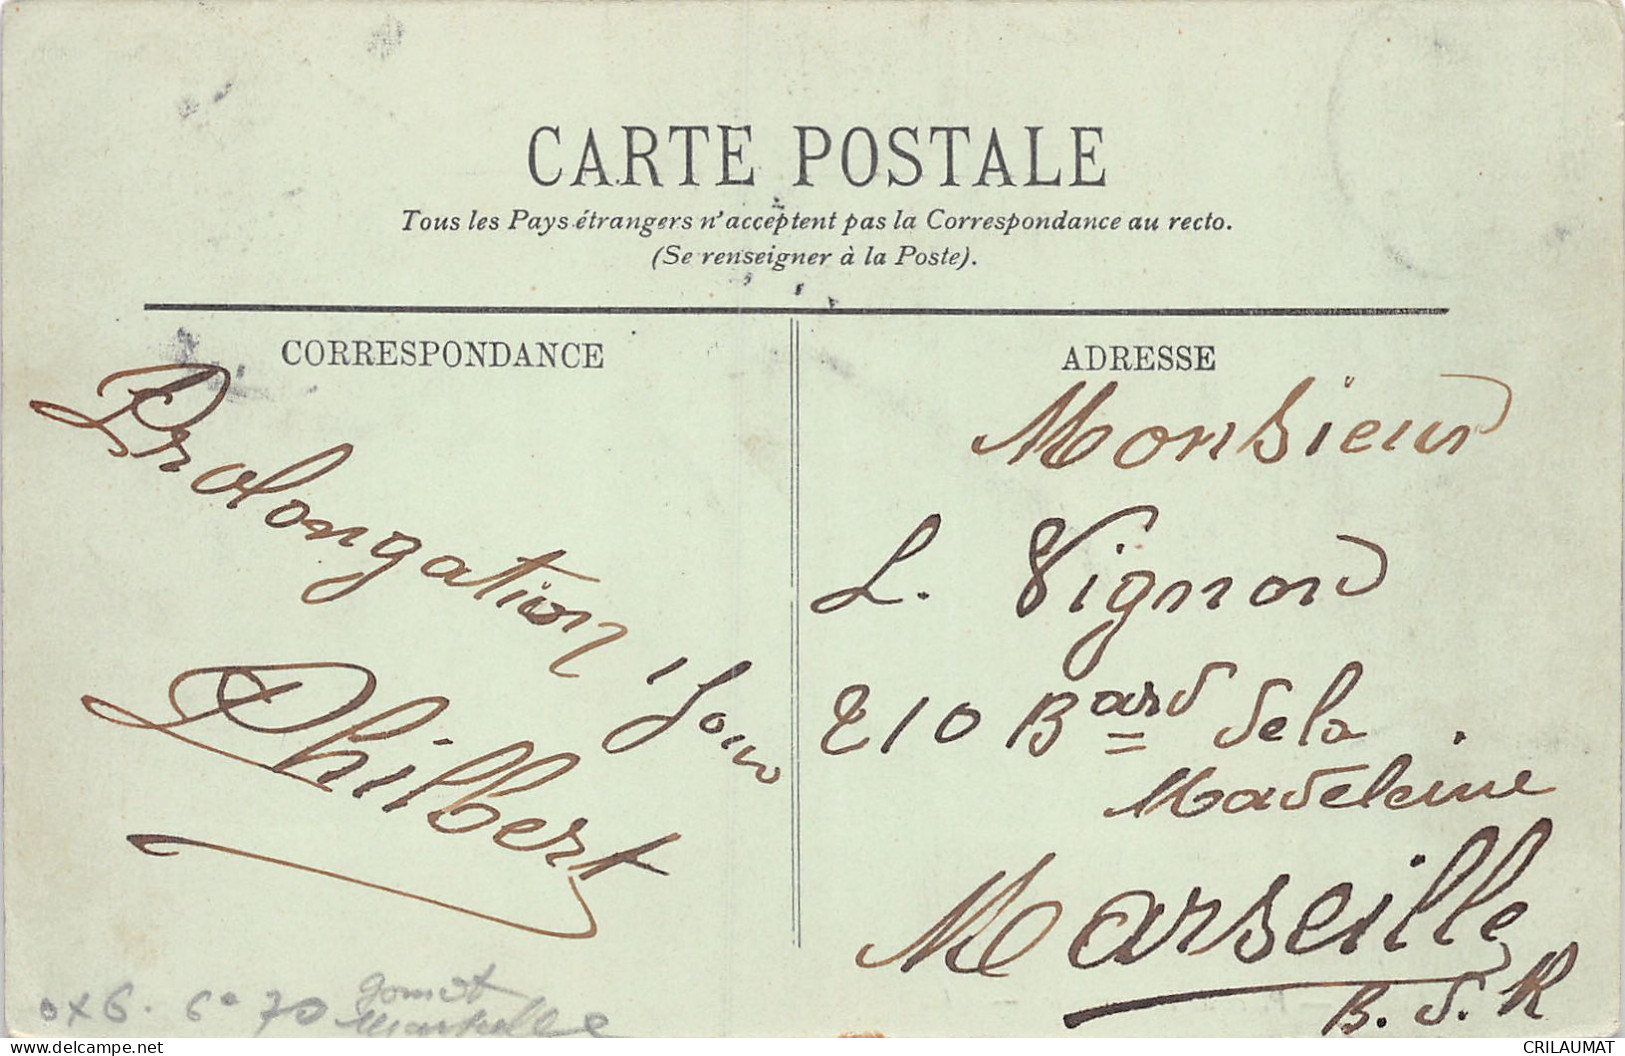 CARTE POSTALE
Tous les Pays étrangers n'acceptent pas la Correspondance au recto.
(Se renseigner à la Poste).
CORRESPONDANCE
Prolongation 1 Jour
Philbert
ADRESSE
Monsieur
L. Vignon
210 Bard de la
Madeleine
Marseille
B. d. R
6 70
CRILAUMAT